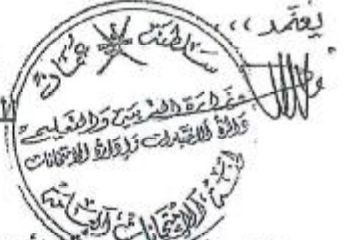 يعتمد ،،،
سلطنة عمان
وزارة التربية والتعليم
دائرة الاختبارات وإدارة الامتحانات
لجنة الامتحانات العامة